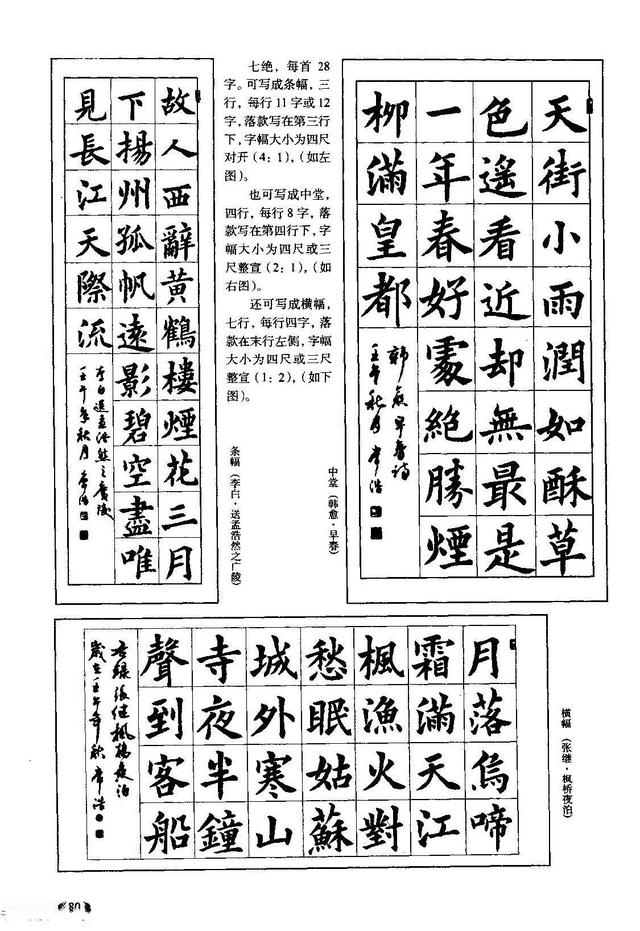 故人西辭黃鶴樓煙花三月
下揚州孤帆遠影碧空盡唯
見長江天際流
李白送孟浩然之廣陵
壬午年秋月
条幅（李白·送孟浩然之广陵）
七绝，每首 28
字。可写成条幅，三
行，每行11字或12
字，落款写在第三行
下，字幅大小为四尺
对开（4：1），（如左
图）。
也可写成中堂，
四行，每行8字，落
款写在第四行下，字
幅大小为四尺或三
尺整宣（2：1），（如
右图）。
还可写成横幅，
七行，每行四字，落
款在末行左侧，字幅
大小为四尺或三尺
整宣（1：2），（如下
图）。
天街小雨潤如酥草
色遙看近却無最是
一年春好處絕勝煙
柳滿皇都
韓愈早春詩
壬午秋月
中堂（韩愈·早春）
月落烏啼
霜滿天江
楓漁火對
愁眠姑蘇
城外寒山
寺夜半鐘
聲到客船
右録張继楓橋夜泊
歲在壬午年秋
横幅（张继·枫桥夜泊）
80